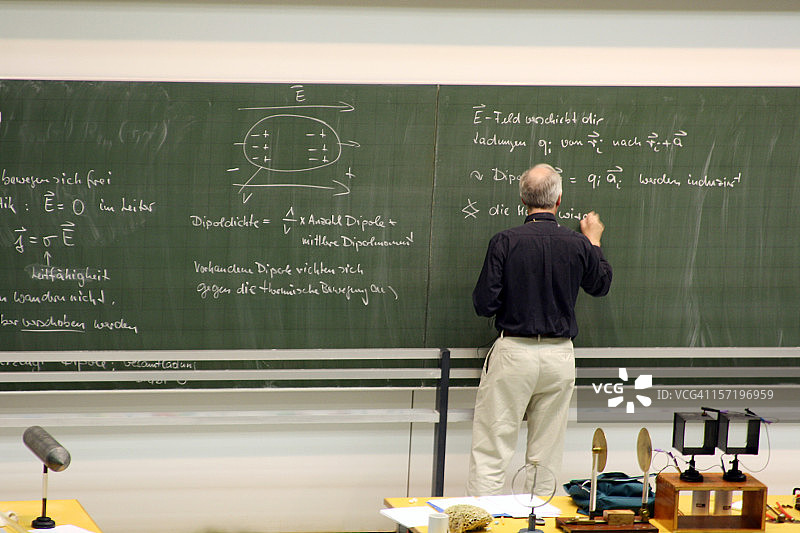 bewegen sich frei
tik: E⃗ = 0 im Leiter
j⃗ = σ E⃗
↑
Leitfähigkeit
n wandern nicht,
ber verschoben werden
E⃗
- + - +
- + - +
- + - +
- +
V
Dipoldichte = 1/V × Anzahl Dipole ×
mittlere Dipolmoment
Vorhandene Dipole richten sich
gegen die thermische Bewegung aus
Dipole, Gesamtladung
E⃗-Feld verschiebt die
Ladungen qᵢ von r⃗ᵢ nach r⃗ᵢ + a⃗
Dip = qᵢ a⃗ᵢ werden induziert
die
VCG
ID: VCG41157196959